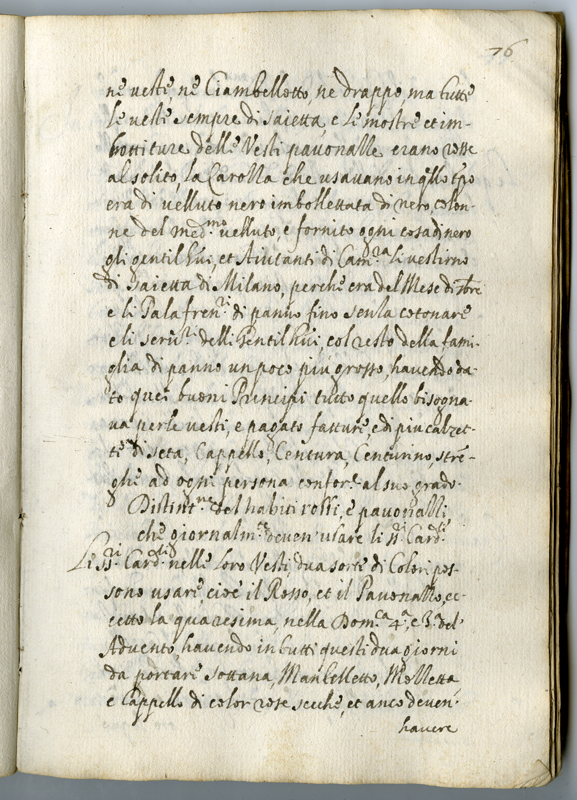 76
ne veste, ne Ciambellotto, ne drappo, ma tutte
le veste sempre di saietta, e le mostre et im-
bottiture delle Vesti pavonalle erano rosse
al solito, la Carolla che usavano in qllo tpo
era di velluto nero imbollettata di nero colon-
ne del med.mo velluto, e fornito ogni cosa di nero
gli gentil'hui, et Aiutanti di Cam.ra li vestirno
di saietta di Milano, perche era del Mese di
e li Palafren.ri di panno fino senza cotonare
e li serv.ri delli Gentil'hui, col resto della fami-
glia di panno un poco più grosso, havendo da-
to quei buoni Principi tutto quello bisogna-
va per le vesti, e pagato fatture, e di piu calzet-
te di seta, Cappello, Centura, Centurino, stre-
ghe ad ogni persona confor.e al suo grado.
Distint.ne del habiti rossi, e pavonalli
che giornalm.te deven usare li ss.ri Card.li
Li ss.ri Card.li nelle loro Vesti dua sorte di Colori pos-
sono usare, cioè il Rosso, et il Pavonallo, ec-
cetto la quaresima, nella Dom.ca 4.a, e 3.a del
Advento, havendo in tutti questi dua giorni
da portare sottana, Mantelletto, Mozzetta
e Cappello di color rose secche, et anco deven'
havere